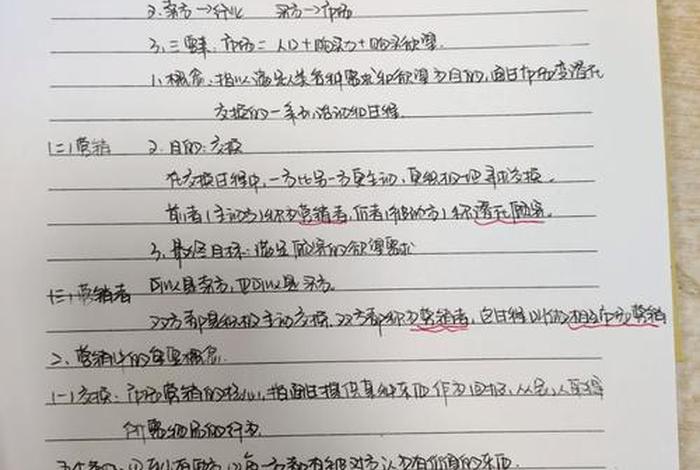 2. 卖方→行业 买方→市场
3. 三要素: 市场=人口+购买力+购买欲望
1. 概念: 指以满足人类各种需求和欲望为目的, 通过市场变潜在
交换的一系列活动和过程.
(二) 营销 2. 目的: 交换
在交换过程中, 一方比另一方更主动, 更积极地寻求交换.
前者(主动方)称为营销者, 后者(被动方)称潜在顾客.
3. 最终目标: 满足顾客的欲望需求
(三) 营销者 即可以是卖方, 也可以是买方.
双方都是积极主动交换, 双方都称为营销者, 这过程叫做相互市场营销
2、营销中的重要概念.
(一) 交换: 市场营销的核心, 指通过提供某种东西作为回报, 从他人取得
所需物品的行为.
五个条件: (1)至少有两方 (2)每一方都有被对方认为有价值的东西.